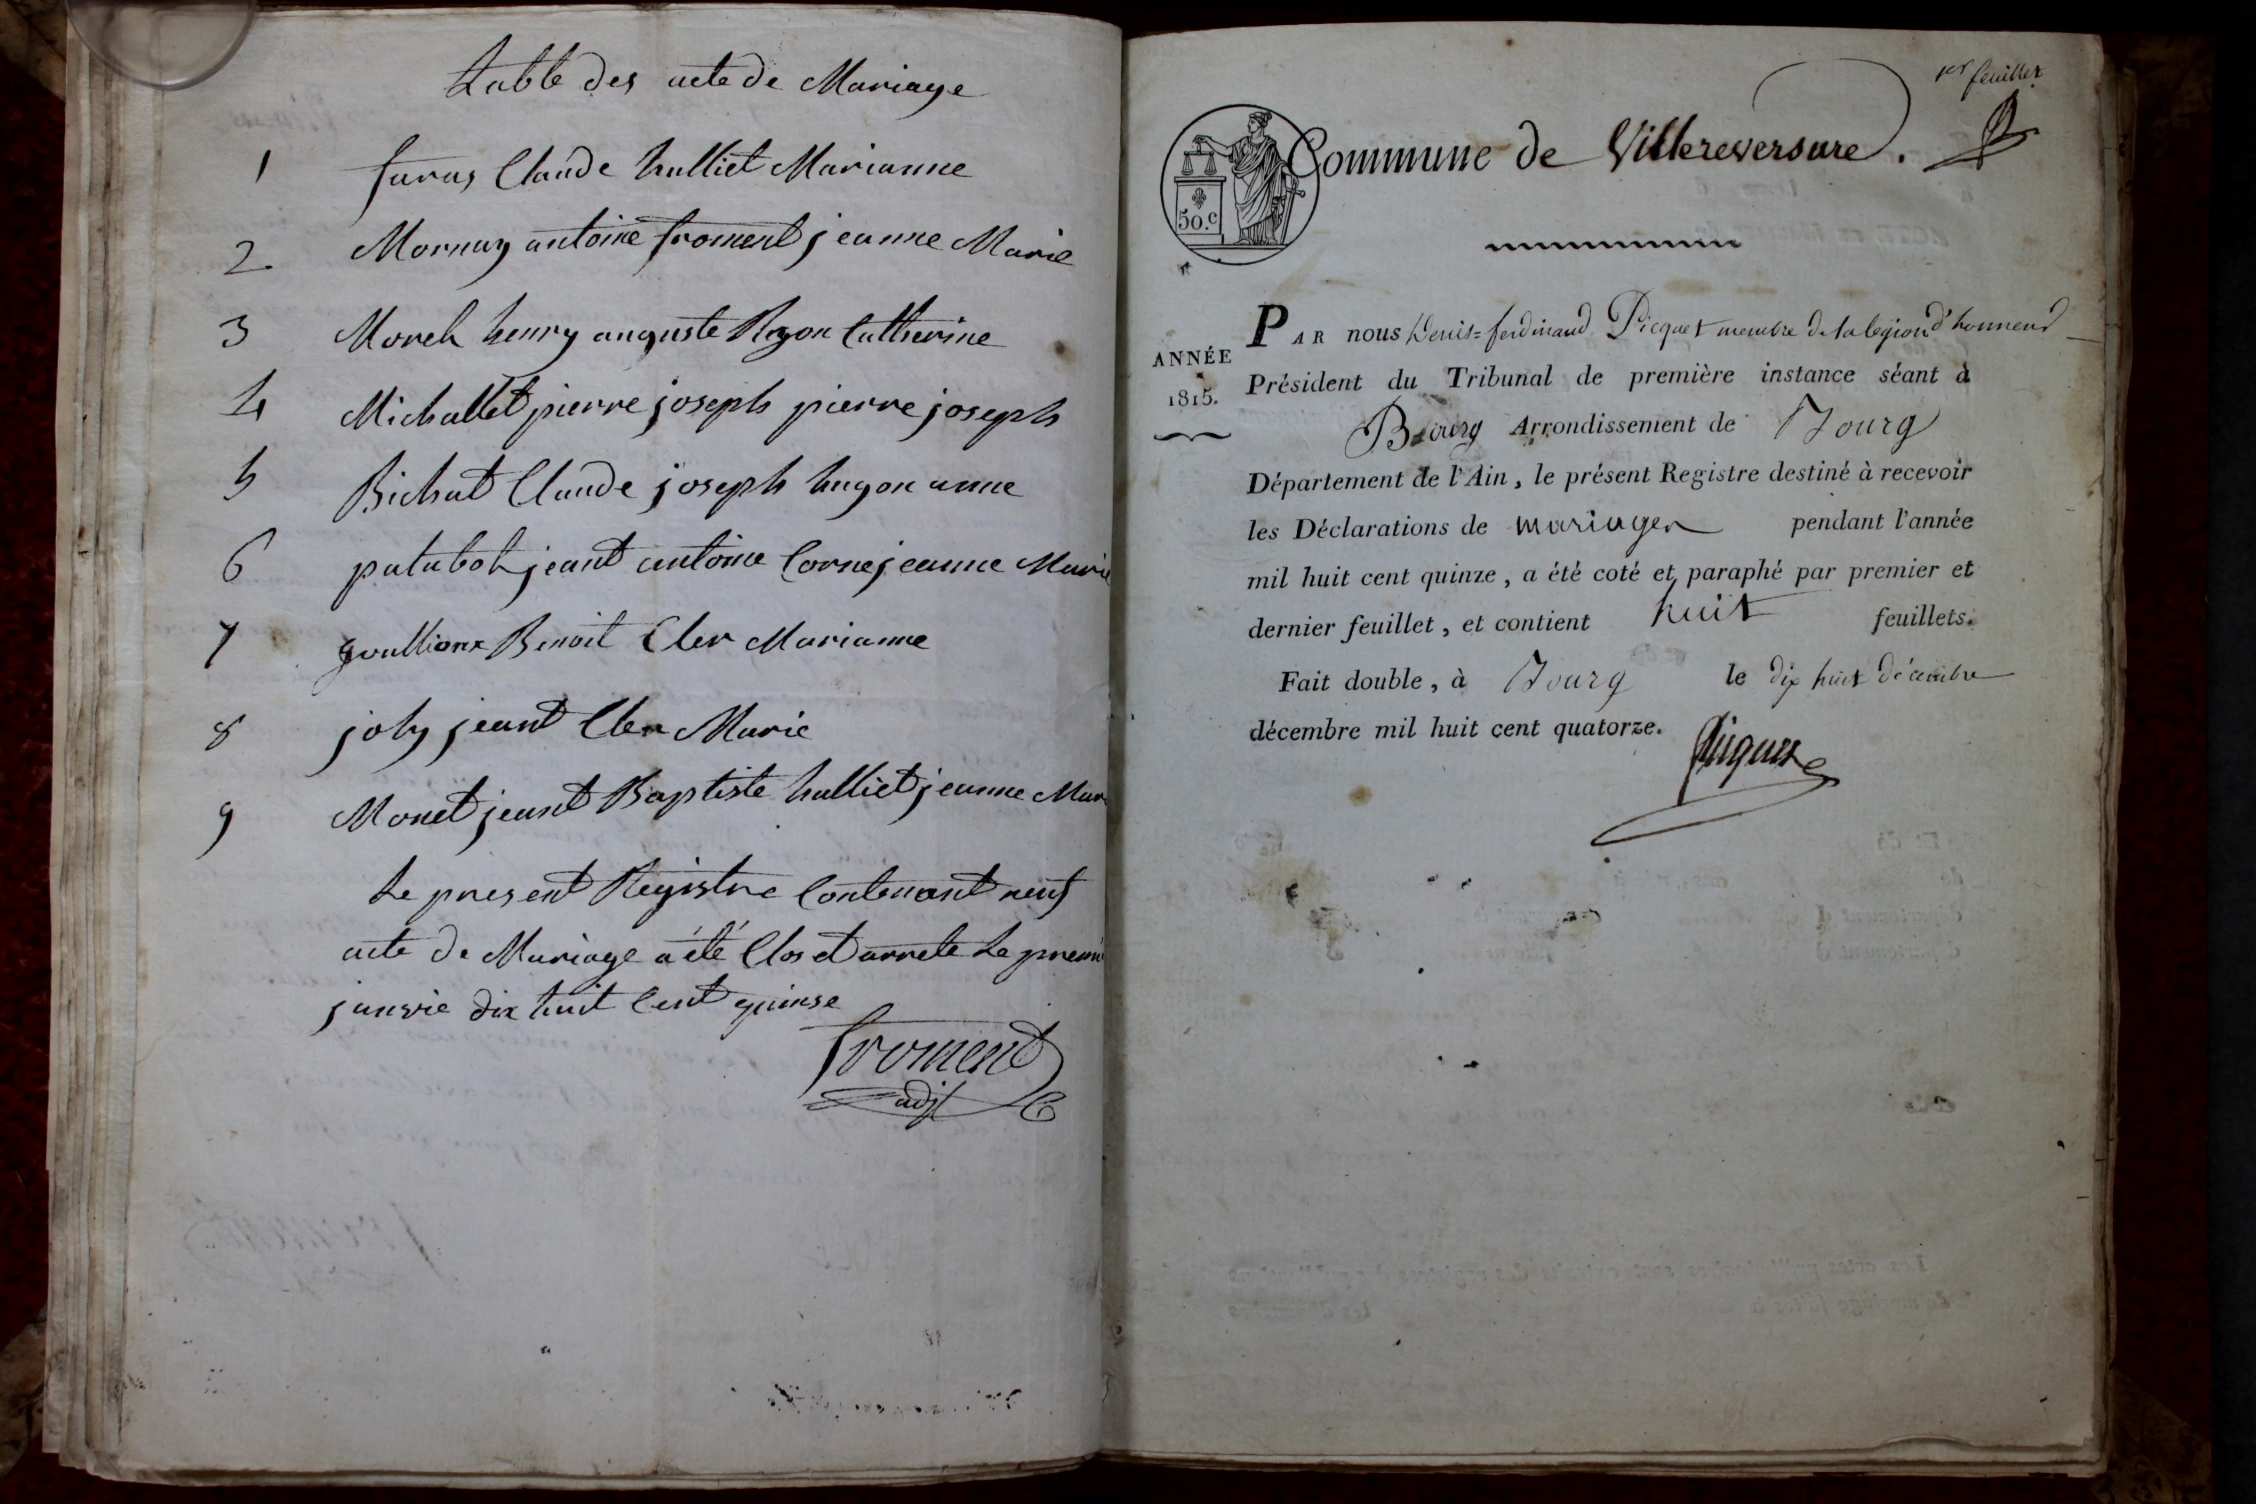 table des acte de Mariage
1 furas Claude hulliet Marianne
2 Mornay antoine froment jeanne Marie
3 Morel henry auguste Rozon Catherine
4 Michallet pierre joseph pierre joseph
5 Bichat Claude joseph hugon anne
6 jeant antoine Corne jeanne Marie
7 Benoit Cler Marianne
8 joly jeant Cler Marie
9 Monet jeant Baptiste hulliet jeanne Mar
Le present Registre Contenant neuf
acte de Mariage a été Clos et arrete Le premi
janvie dix huit Cent quinse
froment
adjt
1er feuillet
Commune de Villereversure.
50.c
PAR nous Denis=ferdinand Picquet membre de la legion d'honneur
ANNÉE
1815.
Président du Tribunal de première instance séant à
Bourg Arrondissement de Bourg
Département de l'Ain, le présent Registre destiné à recevoir
les Déclarations de mariages pendant l'année
mil huit cent quinze, a été coté et paraphé par premier et
dernier feuillet, et contient huit feuillets.
Fait double, à Bourg le dix huit décembre
décembre mil huit cent quatorze.
Picquet